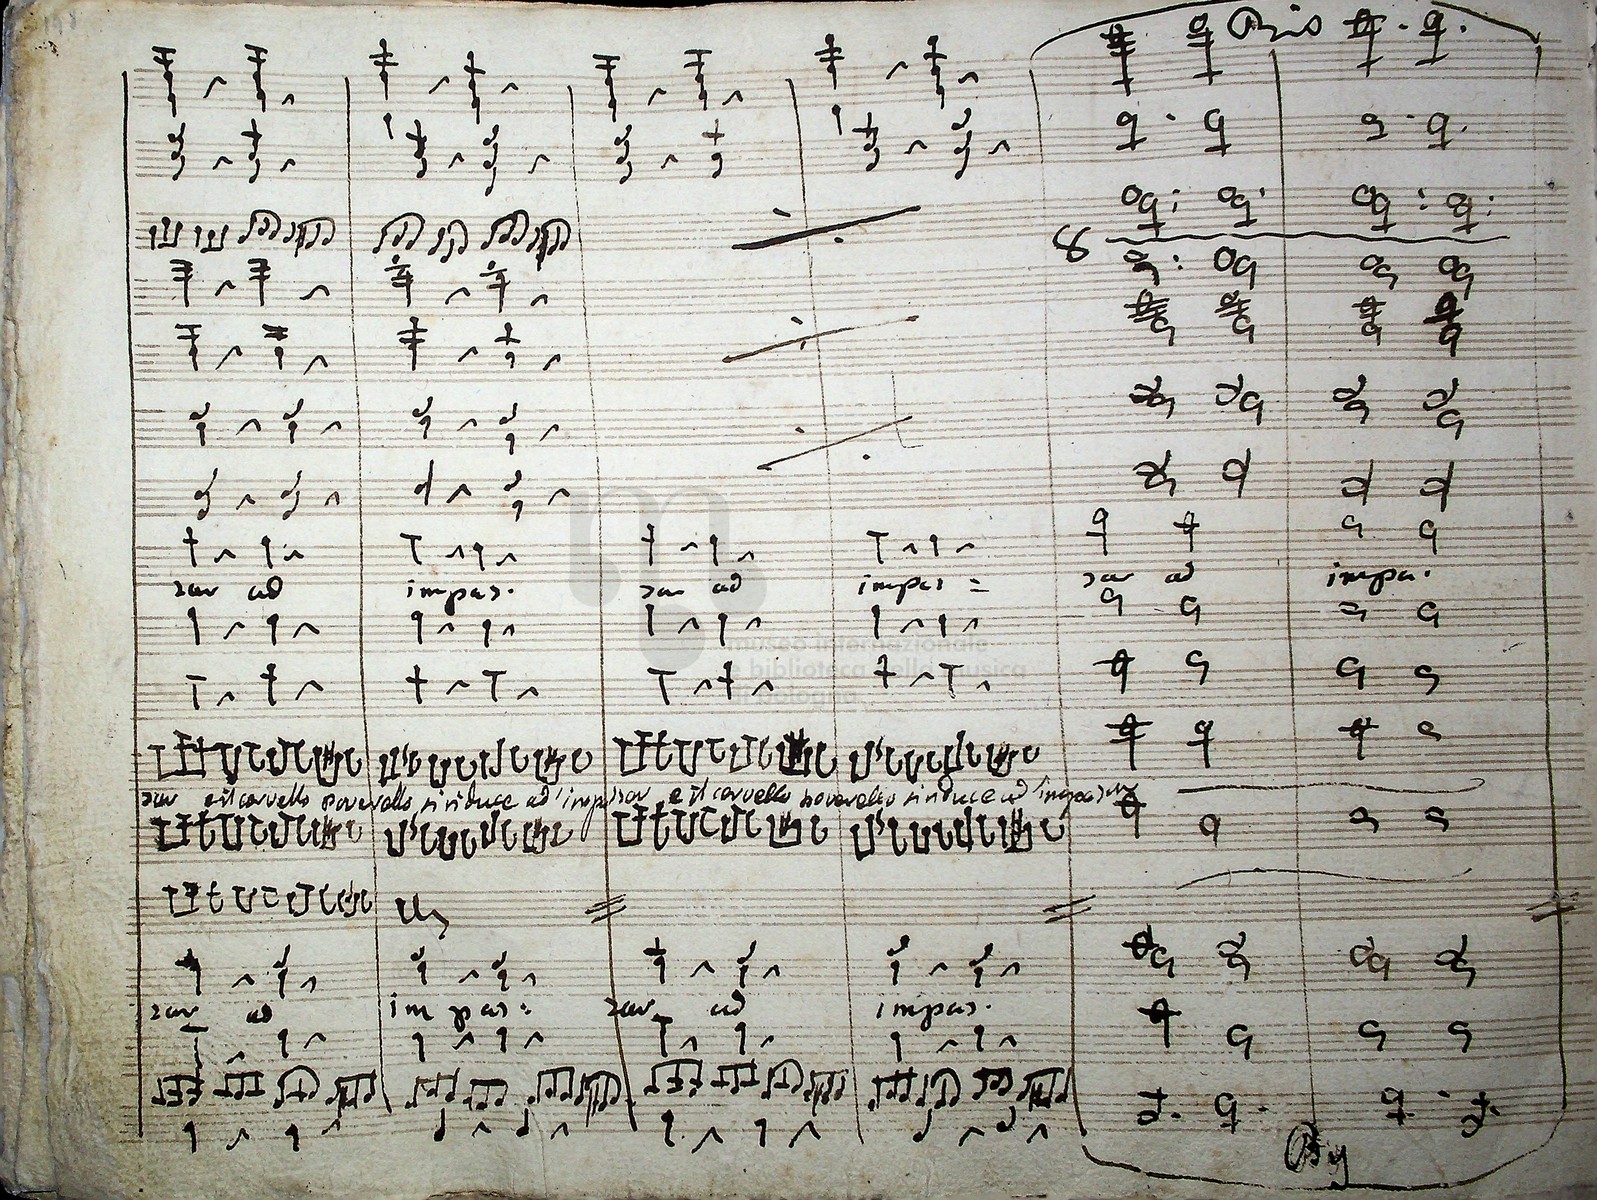 Bis
8
zar ad impaz. zar ad impaz = zar ad impa.
museo internazionale
e biblioteca della musica
di bologna
zar e il cervello poverello si riduce ad impazzar e il cervello poverello si riduce ad impazzar
zar ad impaz: zar ad impaz.